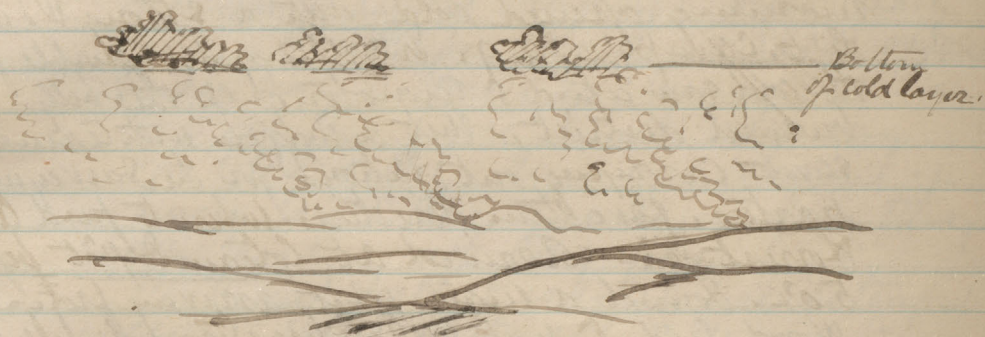 Bottom
of cold layer.